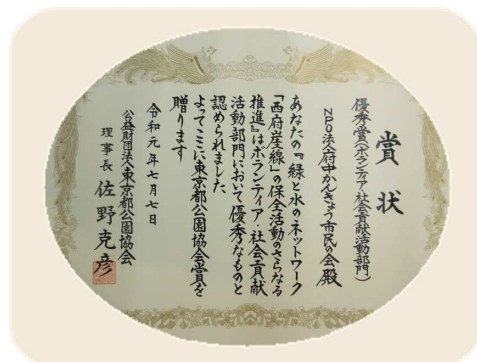 賞状
優秀賞(ボランティア・社会貢献活動部門)
NPO法人府中かんきょう市民の会殿
あなたの『緑と水のネットワーク
「西府崖線」の保全活動のさらなる
推進』はボランティア・社会貢献
活動部門において優秀なものと
認められました
よってここに東京都公園協会賞を
贈ります
令和元年七月七日
公益財団法人東京都公園協会
理事長 佐野克彦